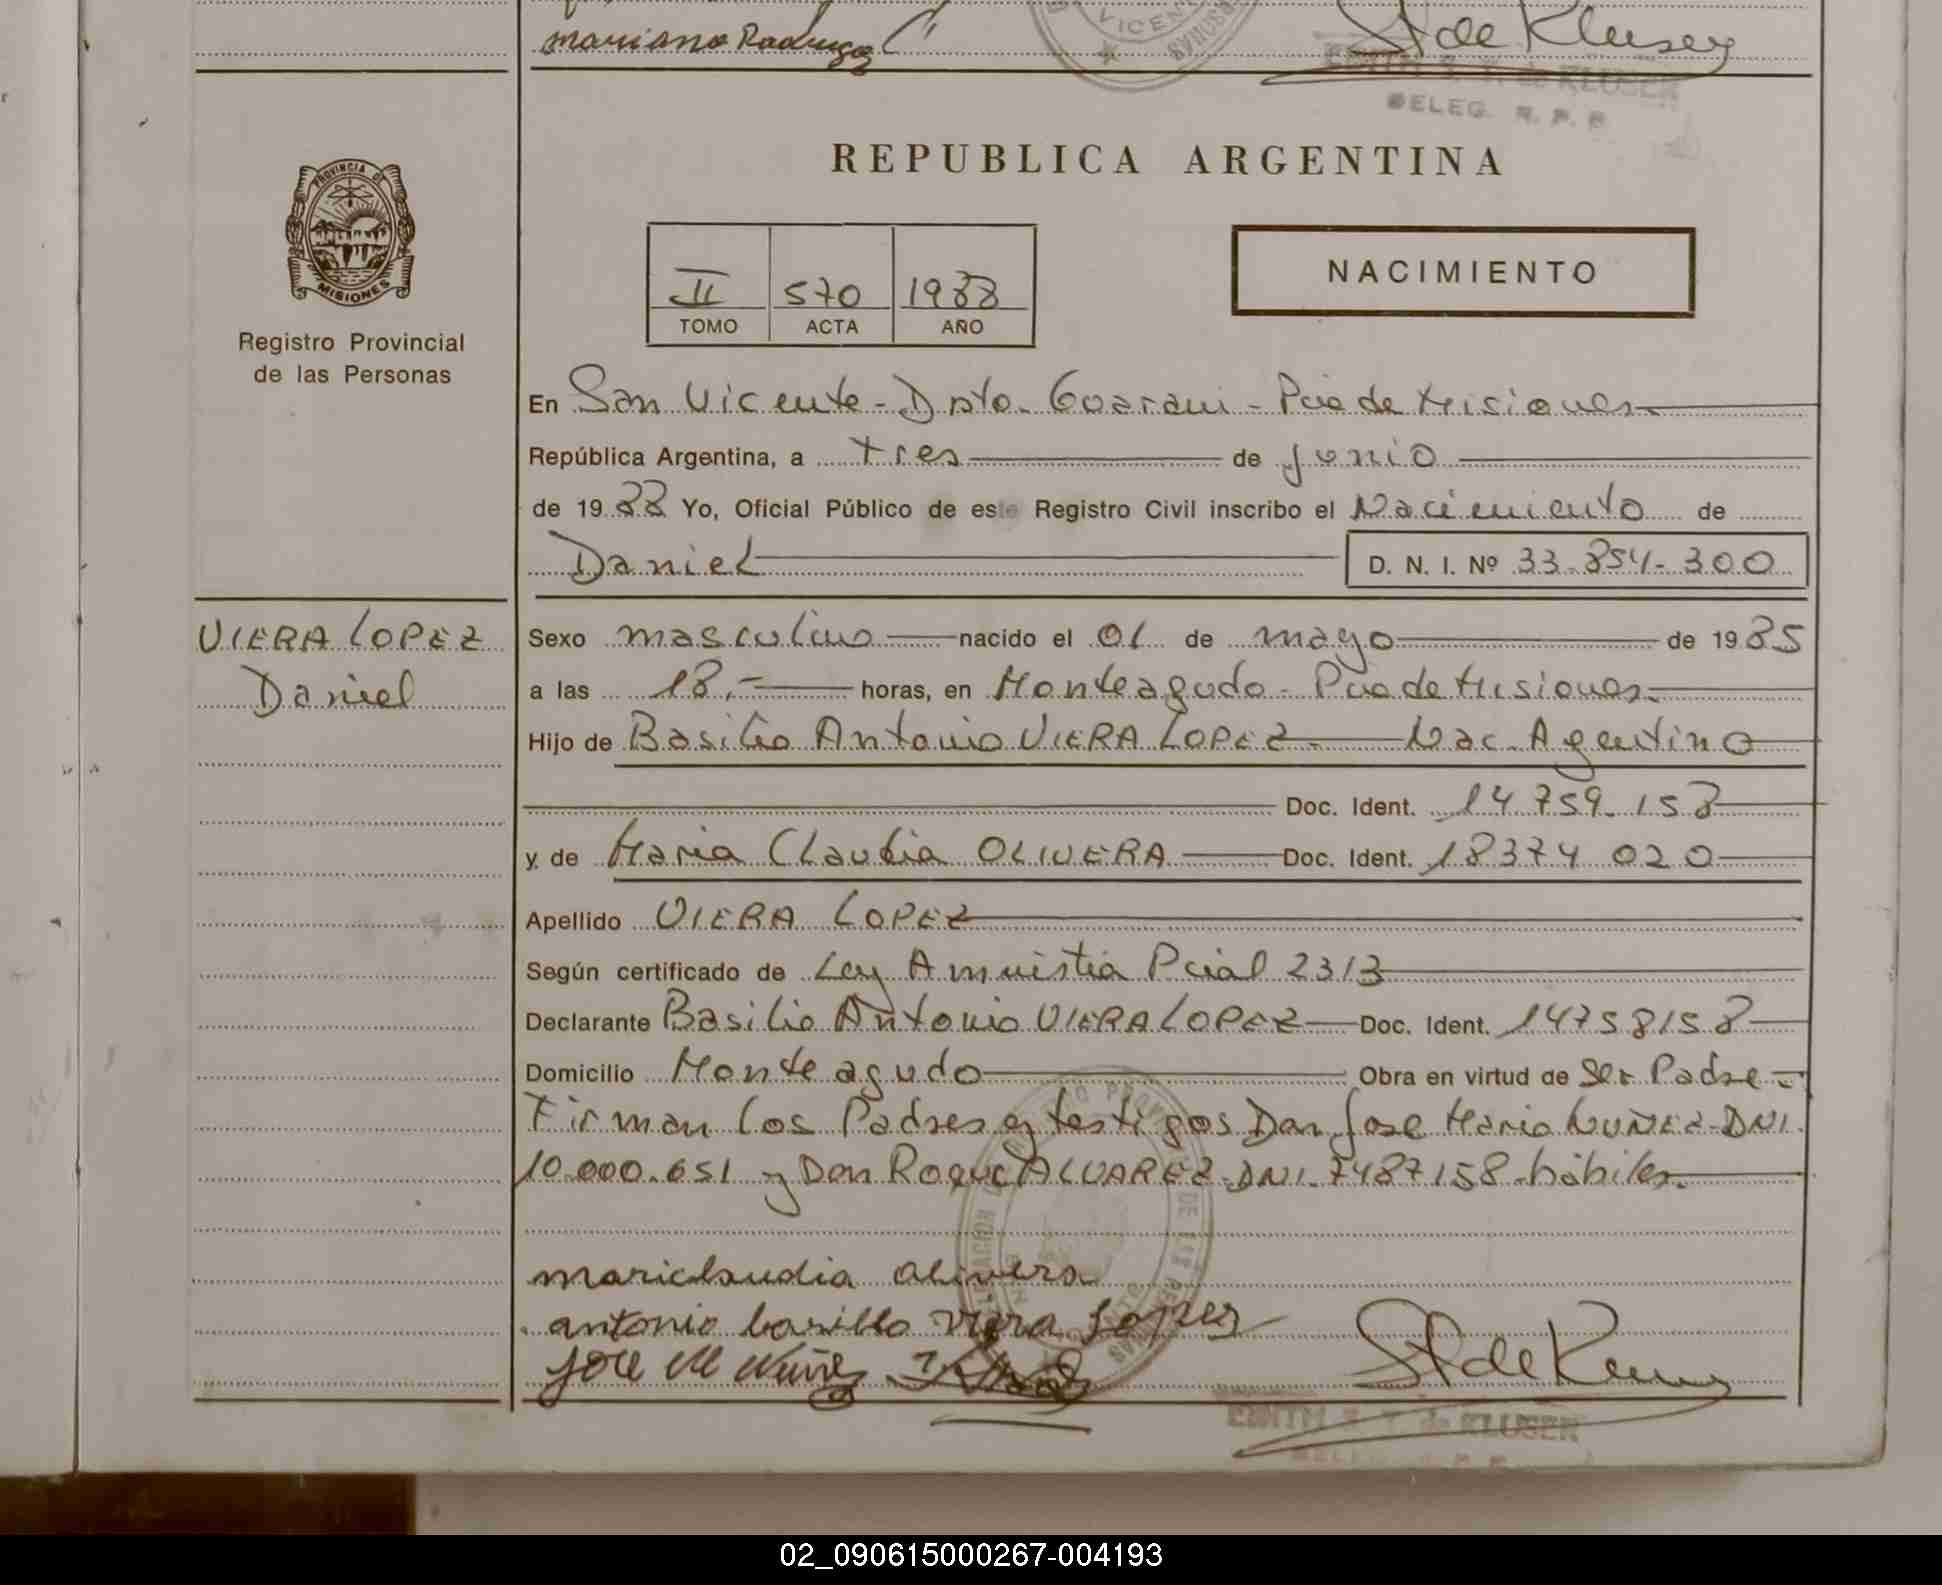 mariano Rodrigez
VICENTE
EDITH S. T. de KLUSER
DELEG. R. P. P.
REPUBLICA ARGENTINA
PROVINCIA DE
MISIONES
Registro Provincial
de las Personas
II 570 1988
TOMO ACTA AÑO
NACIMIENTO
En San Vicente - Dpto. Guarani - Pcia de Misiones
República Argentina, a tres de junio
de 19 88 Yo, Oficial Público de este Registro Civil inscribo el Nacimiento de
Daniel D. N. I. Nº 33.854.300
VIERA LOPEZ
Daniel
Sexo masculino nacido el 01 de mayo de 19 85
a las 18.- horas, en Monteagudo - Pcia de Misiones.
Hijo de Basilio Antonio VIERA LOPEZ. Nac. Agentino
Doc. Ident. 14.759.158
y de Maria Claudia OLIVERA Doc. Ident. 18374 020
Apellido VIERA LOPEZ
Según certificado de Ley Amnistia Pcial 2313
Declarante Basilio Antonio VIERA LOPEZ Doc. Ident. 14758158
Domicilio Monteagudo Obra en virtud de Ser Padre -
Firman los Padres y testigos Don Jose Maria NUÑEZ - DNI.
10.000.651 y Don Roque ALVAREZ - DNI. 7487158 - hábiles.
mariclaudia olivera
antonio basilio viera Lopez
Jose M Nuñez
EDITH S. T. de KLUSER
02_090615000267-004193